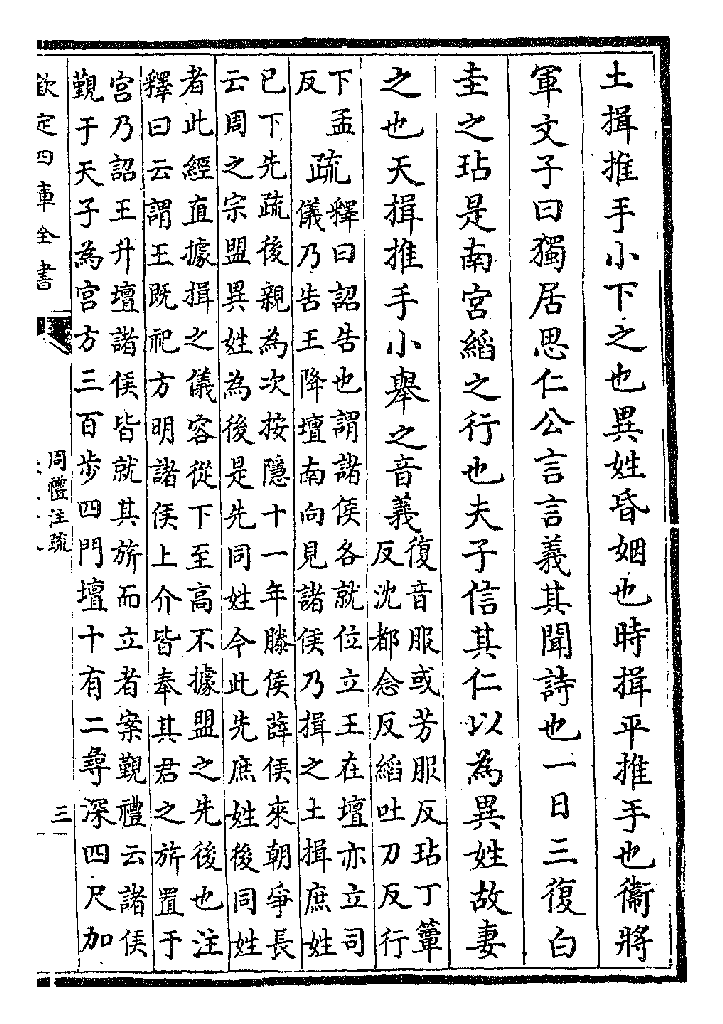 土揖推手小下之也異姓昏姻也時揖平推手也衞將
軍文子曰獨居思仁公言言義其聞詩也一日三復白
圭之玷是南宮縚之行也夫子信其仁以為異姓故妻
之也天揖推手小舉之音義復音服或芳服反玷丁簟
反沈都念反縚吐刀反行
下孟
反
疏釋曰詔告也謂諸侯各就位立王在壇亦立司
儀乃告王降壇南向見諸侯乃揖之土揖庶姓
已下先疏後親為次按隱十一年滕侯薛侯來朝爭長
云周之宗盟異姓為後是先同姓今此先庶姓後同姓
者此經直據揖之儀容從下至高不據盟之先後也注
釋曰云謂王既祀方明諸侯上介皆奉其君之旂置于
宮乃詔王升壇諸侯皆就其旂而立者案覲禮云諸侯
覲于天子為宮方三百步四門壇十有二尋深四尺加
欽定四庫全書
周禮注疏
三